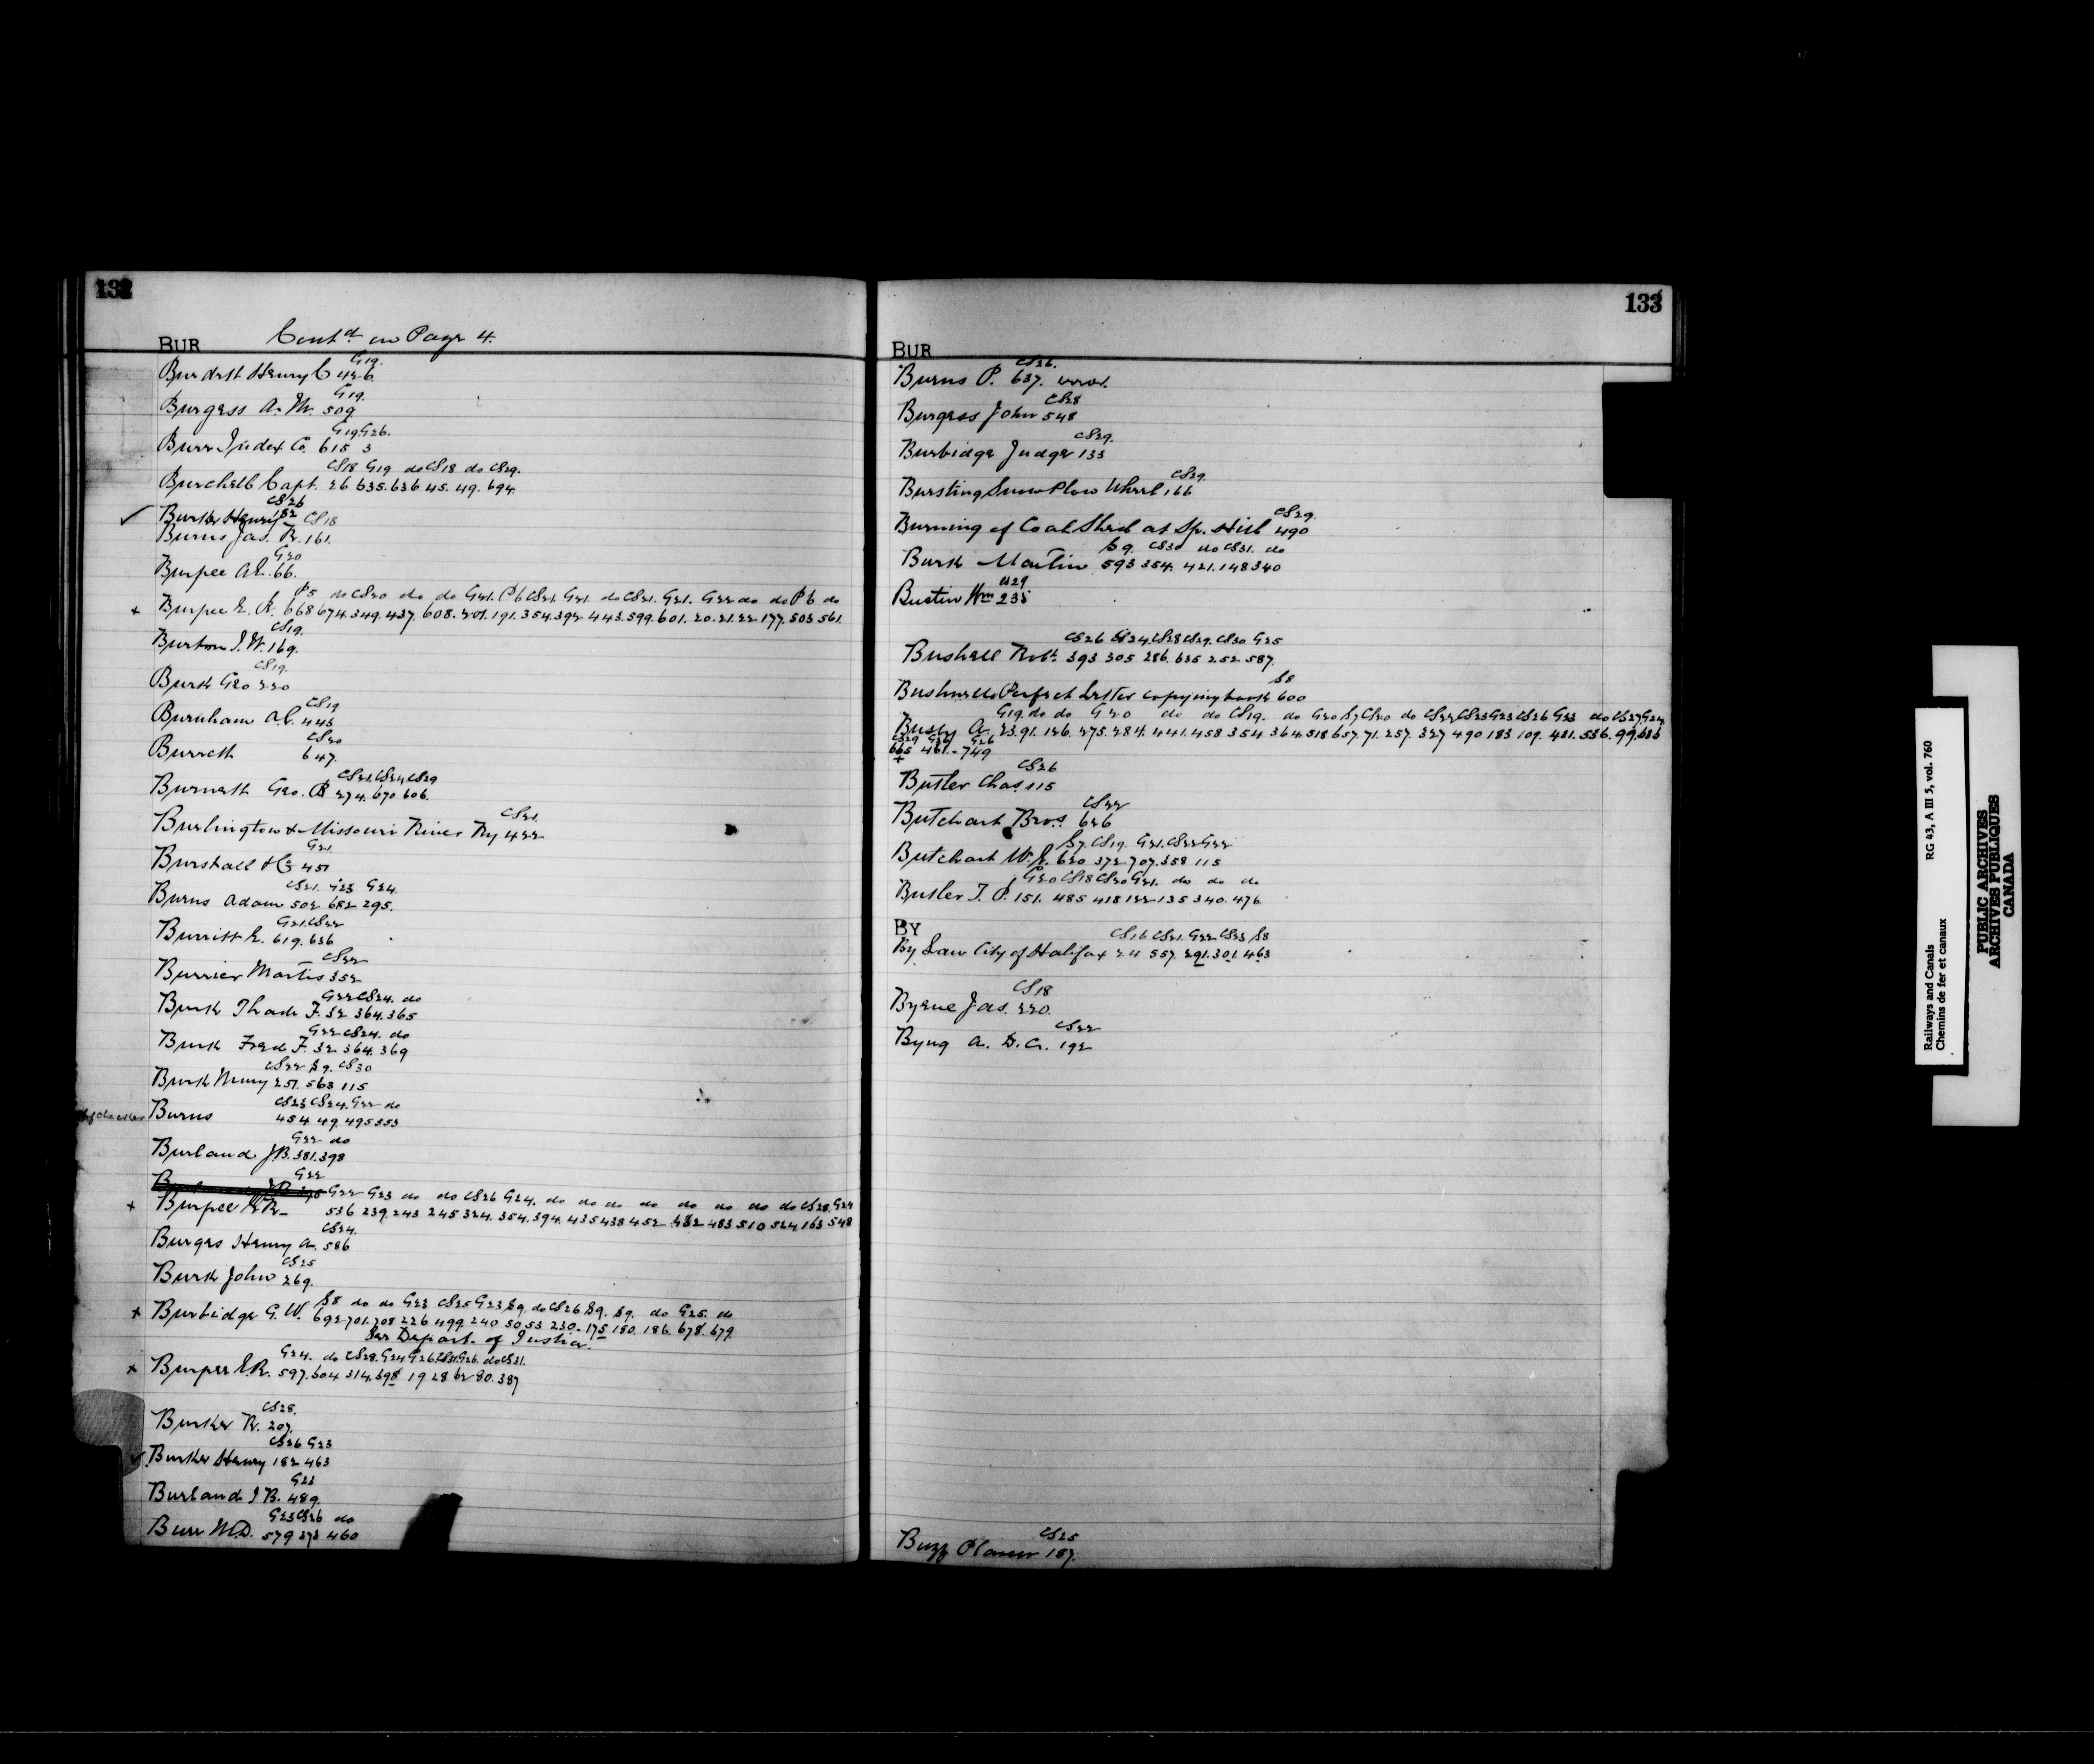 132
BUR Contd on Page 4.
G19.
Burdett Henry C 426.
G19.
Burgess A. M. 509
G19 G26.
Burr Index Co. 615 3
CS18 G19 do CS18 do CS29.
Burchell Capt. 26 635. 636 45. 49. 694.
CS26
Burke Henry 182
CS18
Burns Jas. R. 161.
G20
Burpee 66.
P5 do CS20 do do G21. P6 CS21. G21. do CS21. G21. G22 do do P6 do
+ Burpee E. R. 668 674. 349. 437. 608. 191. 354. 392 443. 599. 601. 20. 21. 22 177. 503 561.
CS19.
Burton J. W. 169.
CS19.
Burk Geo 220
CS19
Burnham A. C. 443
CS20
Burrett 647.
CS21. CS24 CS29
Burnett Geo. 274. 670 606.
CS21.
Burlington & Missouri River Ry 422
G21.
Burstall & Co 451
CS21. G23 G24.
Burns Adam 502 682 295.
G21 CS22
Burritt E. 619. 636
CS22
Burrier Martis 352
G22 CS24. do
Burk F. 32 364. 365
G22 CS24. do
Burk Fred F. 32 364. 369
CS22 S9. CS30
Burk 257. 563 115
CS23 CS24. G22 do
Burns 454 49. 495 553
G22 do
Burland J. B. 381. 398
G22
G22 G23 do do CS26 G24. do do do do do do do do CS28. G24
+ Burpee E. R. 536 239. 243 245 324. 354. 394. 435 438 452 482 483 510 524. 163 548
CS24.
Burges Henry A. 586
CS25
Burk John 269.
S8 do do G23 CS25 G23 S9. do CS26 S9. S9. do G25. do
+ Burbidge G. W. 692 701. 708 226 499. 240 50 53 230. 175 180. 186. 678. 679.
See Depart. of Justice.
G24. do CS28. G24 G26. CS31. G26. do CS31.
+ Burpee E. R. 597. 604 314. 698 19 28 62 80. 387
CS28.
Burker R. 207.
CS26 G23
Burke Henry 182 463
G23
Burland J B. 489.
G23 CS26 do
Burr M. D. 579 273 460
133
BUR
CS26.
Burns P. 637. error.
CS28
Burgess John 548
CS29.
Burbidge Judge 133
CS29.
Bursting Snow Plow Wheel 166
CS29.
Burning of Coal Shed at Sp. Hill 490
S9. CS30 do CS31. do
Burk Martin 593 354. 421. 148 340
CS29
Bustin Wm 235
CS26 G24. CS28 CS29. CS30 G25
Bushell Robt. 393 305 286. 635 252 587.
S8
Bushnells Perfect Letter copying book 600
G19. do do G20 do do CS19. do G20 S7 CS20 do CS22 CS23 G23 CS26 G23 do CS27. G24
Busby A. 23. 91. 126. 275. 284. 441. 458 354 364. 518 657. 71. 257. 327 490 183 109. 421. 536. 99. 636
CS29 G26 G26
665 461. - 749
+
CS26
Butler Chas. 115
CS22
Butchart Bros. 626
S7. CS19. G21. CS22 G22
Butchart W. E. 620 372 707. 358 115
G20 CS18 CS20 G21. do do do
Butler J. P. 151. 485 418 122 135 340. 476
BY
CS16 CS21. G22 CS23 S8
By Law City of Halifax 24 557. 291. 301. 463
CS18
Byrne Jas. 220.
CS22
Byng A. D. C. 192
CS25
Buzz Planer 187.
Railways and Canals RG 43, A III 5, vol. 760
Chemins de fer et canaux
PUBLIC ARCHIVES
ARCHIVES PUBLIQUES
CANADA